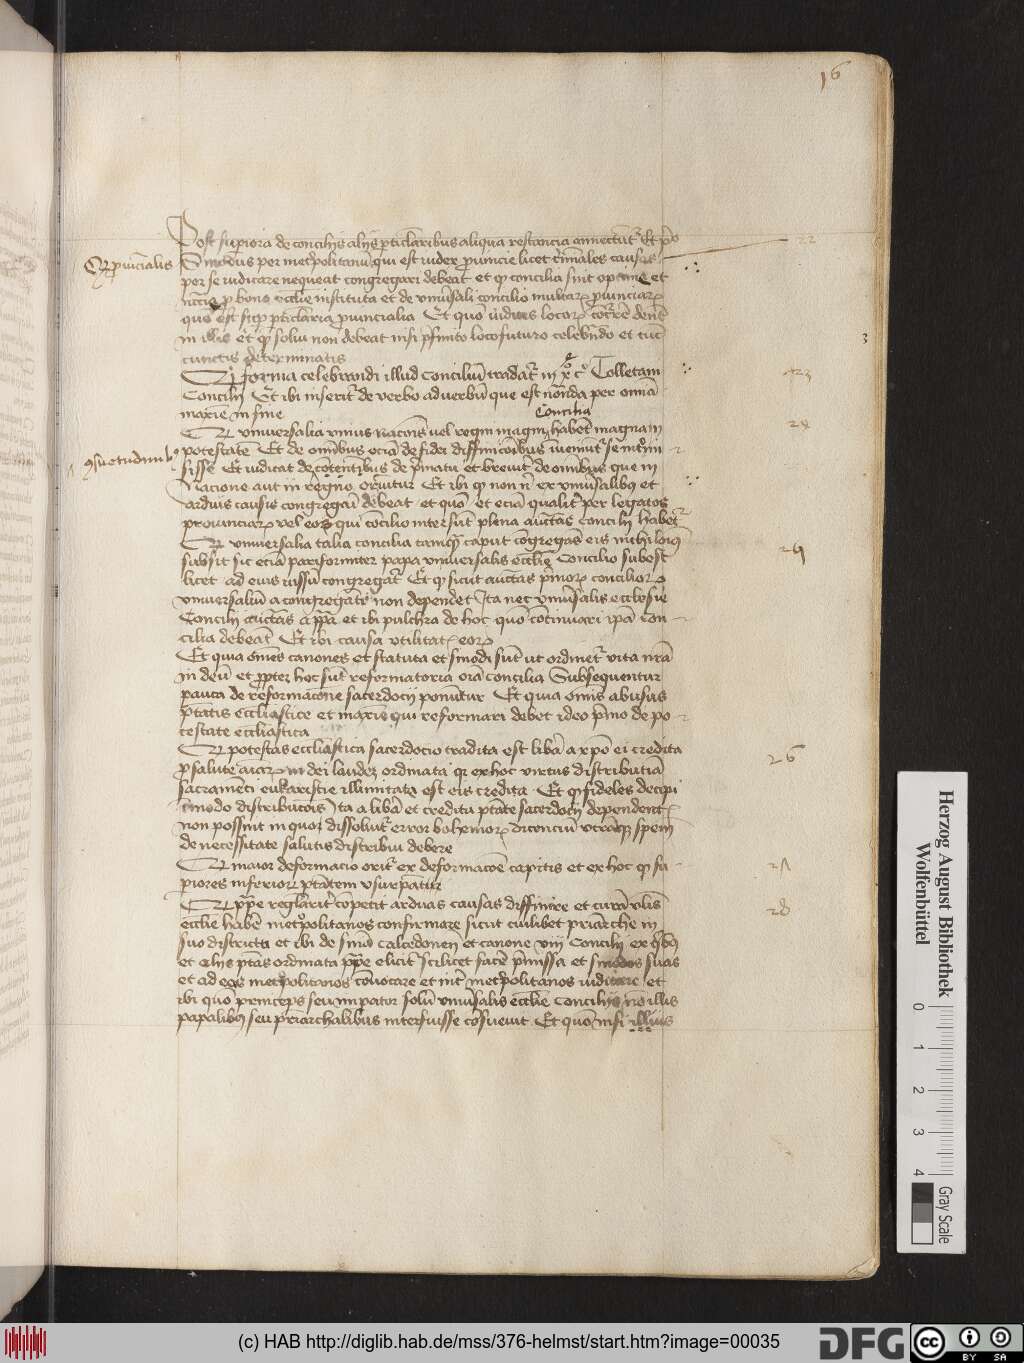 16
Post supiora de concilijs alijs pticlaribus aliqua restancia annectunt Et po
22
Q puicialis
Sinodus per metpolitanu qui est iudex puincie licet criminales causas
per se iudicare nequeat congregari debeat et q concilia sint optime et
p bono ecclie instituta et de vniusali concilio multar puinciar
quo est sicq pticlaria puincialia Et quo
in illis et q solui non debeat nisi pfinito loco futuro celebrado et tuc
cunctis determinatis
Q forma celebrandi illud Conciliu tradat in Tolletam
23
Concilij Et ibi inserit de verbo aduerbu que est notanda per omnia
maxime in fine
Concilia
Q vniuersalia vnius nacois vel regni magni habet magnam
24
potestate Et de omibus ecia de fidei diffinicoibus inueniut se intromi
sisse Et iudicat de cotentibus de pmatu et breuit de omibus que in
Nacione aut in regno oriuntur Et ibi q non n ex vniusalibq et
arduis causis congregari debeat et quo et ecia qualit per legatos
prouinciar vel eos qui cocilio intersut plena auctas concilij habet
Q vniuersalia talia concilia tamq caput cogregas eis nichilomq
25
subsit sic ecia pariformiter papa vniuersalis ecclie Concilio subest
licet ad eius iussu congregat Et q sicut auctas pmor concilior
vniuersaliu a congregate non dependet Ita nec vniusalis ecclesie
Concilij auctas a ppa et ibi pulchra de hoc quo cotinuari ipa con
cilia debeat Et ibi causa vtilitat eor
Et quia omes canones et statuta et sinodi sut ut ordinet vita nra
in deu et ppter hoc sut reformatoria oia concilia Subsequentur
pauca de reformacione sacerdocij ponutur Et quia omis abusus
ptatis ecclesiastice et maxie qui reformari debet ideo pmo de po
testate ecclesiastica
Q potestas ecclesiastica sacerdocio tradita est liba a xpo ei credita
26
p salute aiar in dei laudez ordinata qr ex hoc virtus distributia
sacrameti eukaristie illimitata est eis credita Et q fideles decipi
modo distribucois ita a liba et credita ptate sacerdotij dependent
non possint in quo dissoluit error bohemor dicenciu vtraq spem
de necessitate salutis distribui debere
Q maior deformacio orit ex deformacoe capitis et ex hoc q su
27
piores inferior ptatem vsurpatur
Q ppe reglarit copetit arduas causas diffinire et cura vlis
28
ecclie habe metpolitanos confirmare sicut cuilibet priarche in
suo districtu et ibi de sino Calcedonen et canone viij Concilij ex qbq
et alijs ptas ordinata ppe elicit scilicet face pmissa et sinodos suas
et ad eos metpolitanos couocare et int metpolitanos iudicare et
ibi quo princeps seu impator solu vniusalis ecclie Concilijs no illis
papalibq seu priarchalibus interfuisse cosueuit Et quo nisi illius
Herzog August Bibliothek
Wolfenbüttel
0 1 2 3 4
Gray Scale
(c) HAB http://diglib.hab.de/mss/376-helmst/start.htm?image=00035
DFG
cc BY SA